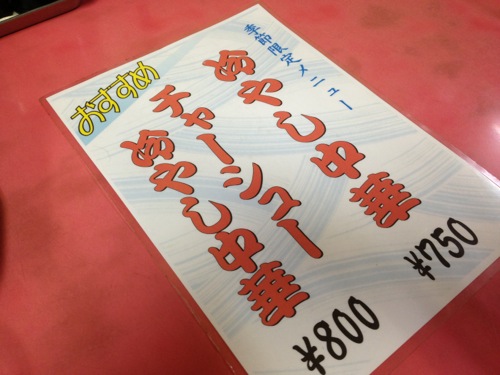 おすすめ
季節限定メニュー
冷やし中華
¥750
チャーシュー
冷やし中華
¥800